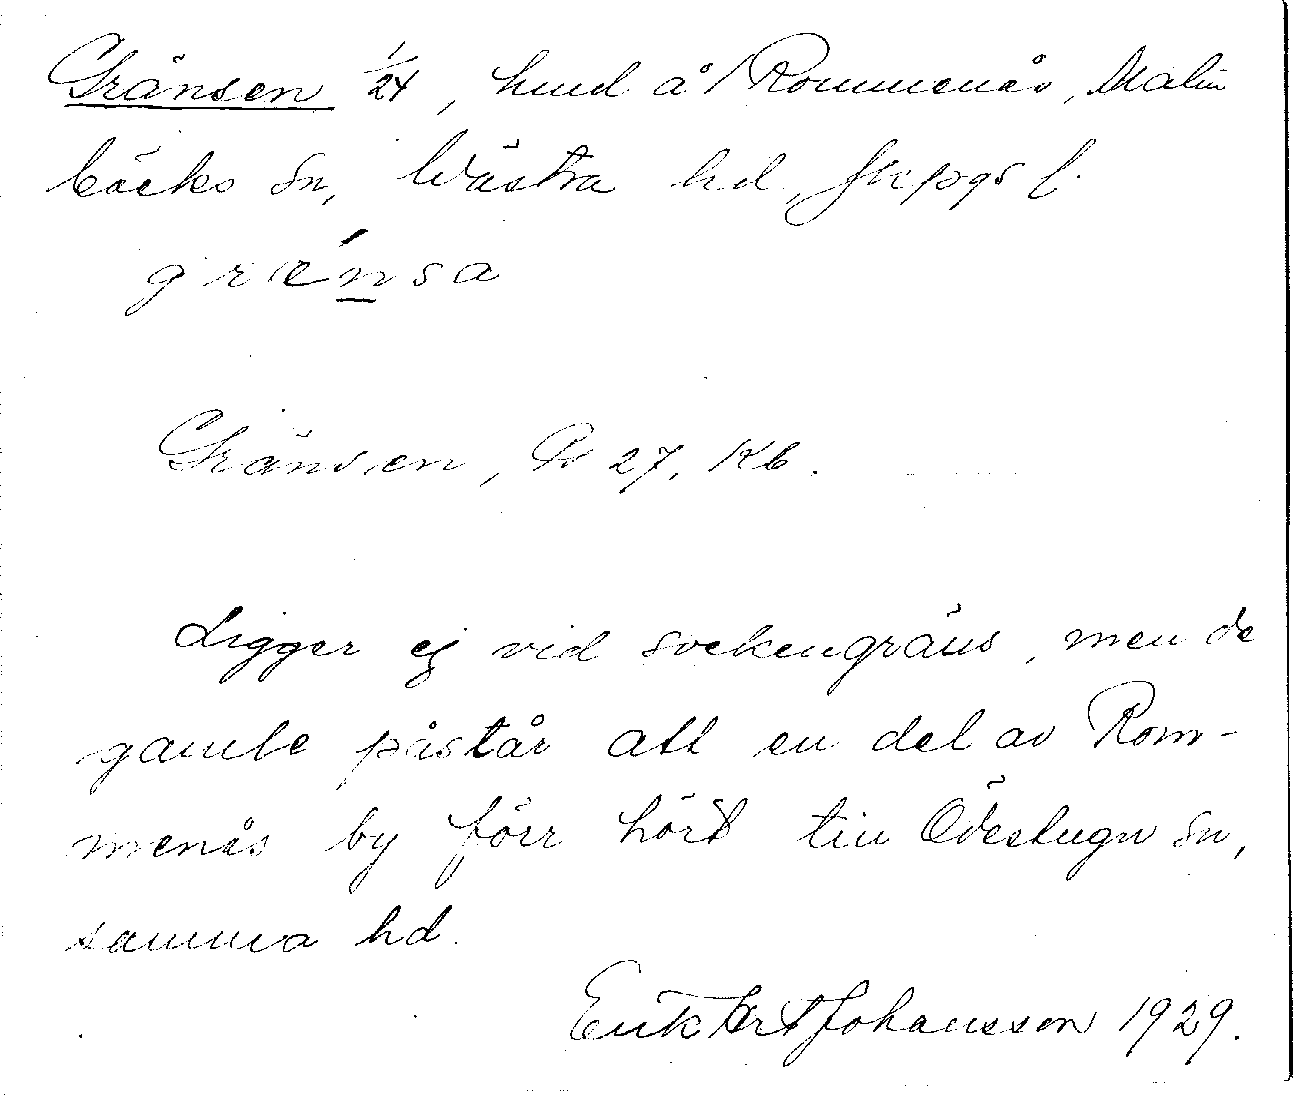 Gränsen 1/24, hmd å Rommenås, Malm
bäcks sn, Västra hd, Jkpgs l.
grénsa
Gränsen, Ps 27, Kb.
Ligger ej vid sockengräns, men de
gamle påstår att en del av Rom-
menås by förr hört till Ödestugu sn,
samma hd.
Erik Johansson 1929.